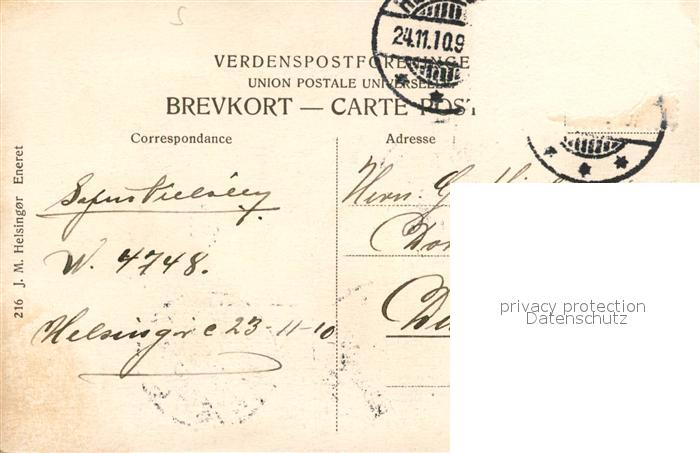 24.11.10.9
VERDENSPOSTFORENINGE
UNION POSTALE UNIVERSELLE
BREVKORT — CARTE POST
Correspondance
Adresse
216 J. M. Helsingør Eneret
W. 4748.
Helsingør 23-11-10
Herrn G.
privacy protection
Datenschutz